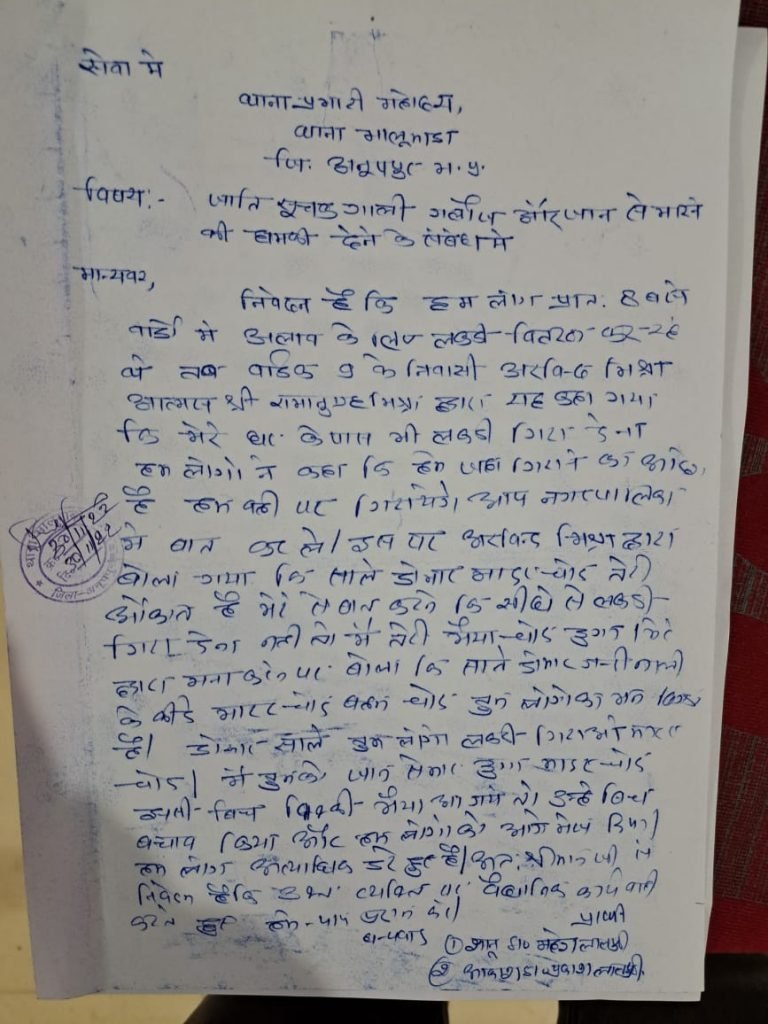 सेवा मे
थाना प्रभारी महोदय,
थाना भालूमाडा
जि. अनूपपुर म.प्र.
विषय:- जाति सूचक गाली गलौज और जान से मारने
की धमकी देने के संबंध मे
मान्यवर,
निवेदन है कि हम लोग प्रात: 8 बजे
वार्डो मे अलाव के लिए लकडी वितरण कर रहे
थे तब वार्ड क्र 9 के निवासी अरविन्द मिश्रा
आत्मज श्री रामानुग्रह मिश्रा द्वारा यह कहा गया
कि मेरे घर के पास भी लकडी गिरा देना
हम लोगो ने कहा कि हमे जहा गिराने का आदेश
है हम वही पर गिरायेगे आप नगरपालिका
मे बात कर ले। इस पर अरविन्द मिश्रा द्वारा
बोला गया कि साले डोमार मादरचोद तेरी
औकात है मेरे से बात करने कि सीधे से लकडी
गिरा देना नही तो मै तेरी मैया चोद दुगा मेरे
द्वारा मना करने पर बोला कि साले डोमार नाली
के कीडे मादरचोद बहन चोद तुम लोगो का मन
है। डोमार साले तुम लोग लकडी गिराओ मादर
चोद। मै तुमको जान से मार दुगा मादरचोद
इसी बिच विक्की भैया आ गये तो उन्होने बिच
बचाव किया और हम लोगो को आगे भेज दिया।
हम लोग अत्याधिक डरे हुए है। अत: श्रीमान जी से
निवेदन है कि उक्त व्यक्ति पर वैधानिक कार्यवाही
करते हुए हमे न्याय प्रदान करे।
धन्यवाद
प्रार्थी
(1) महेश लालजी
(2) आकाश प्रकाश लालजी
थाना
30/11/22
जिला-अनूपपुर